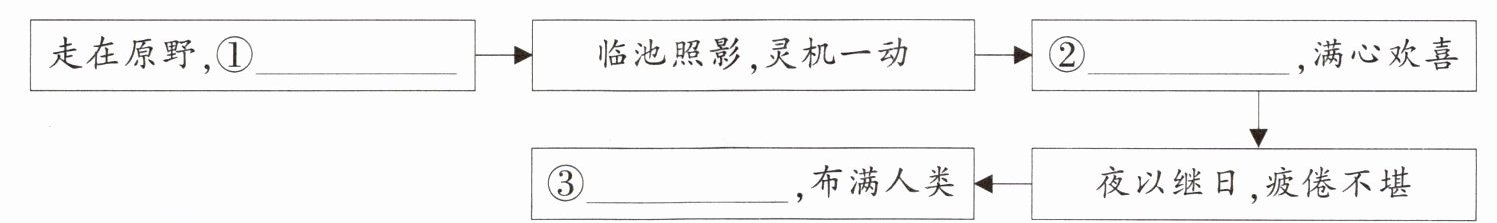 走在原野,①____________
临池照影,灵机一动
②____________,满心欢喜
夜以继日,疲倦不堪
③____________,布满人类